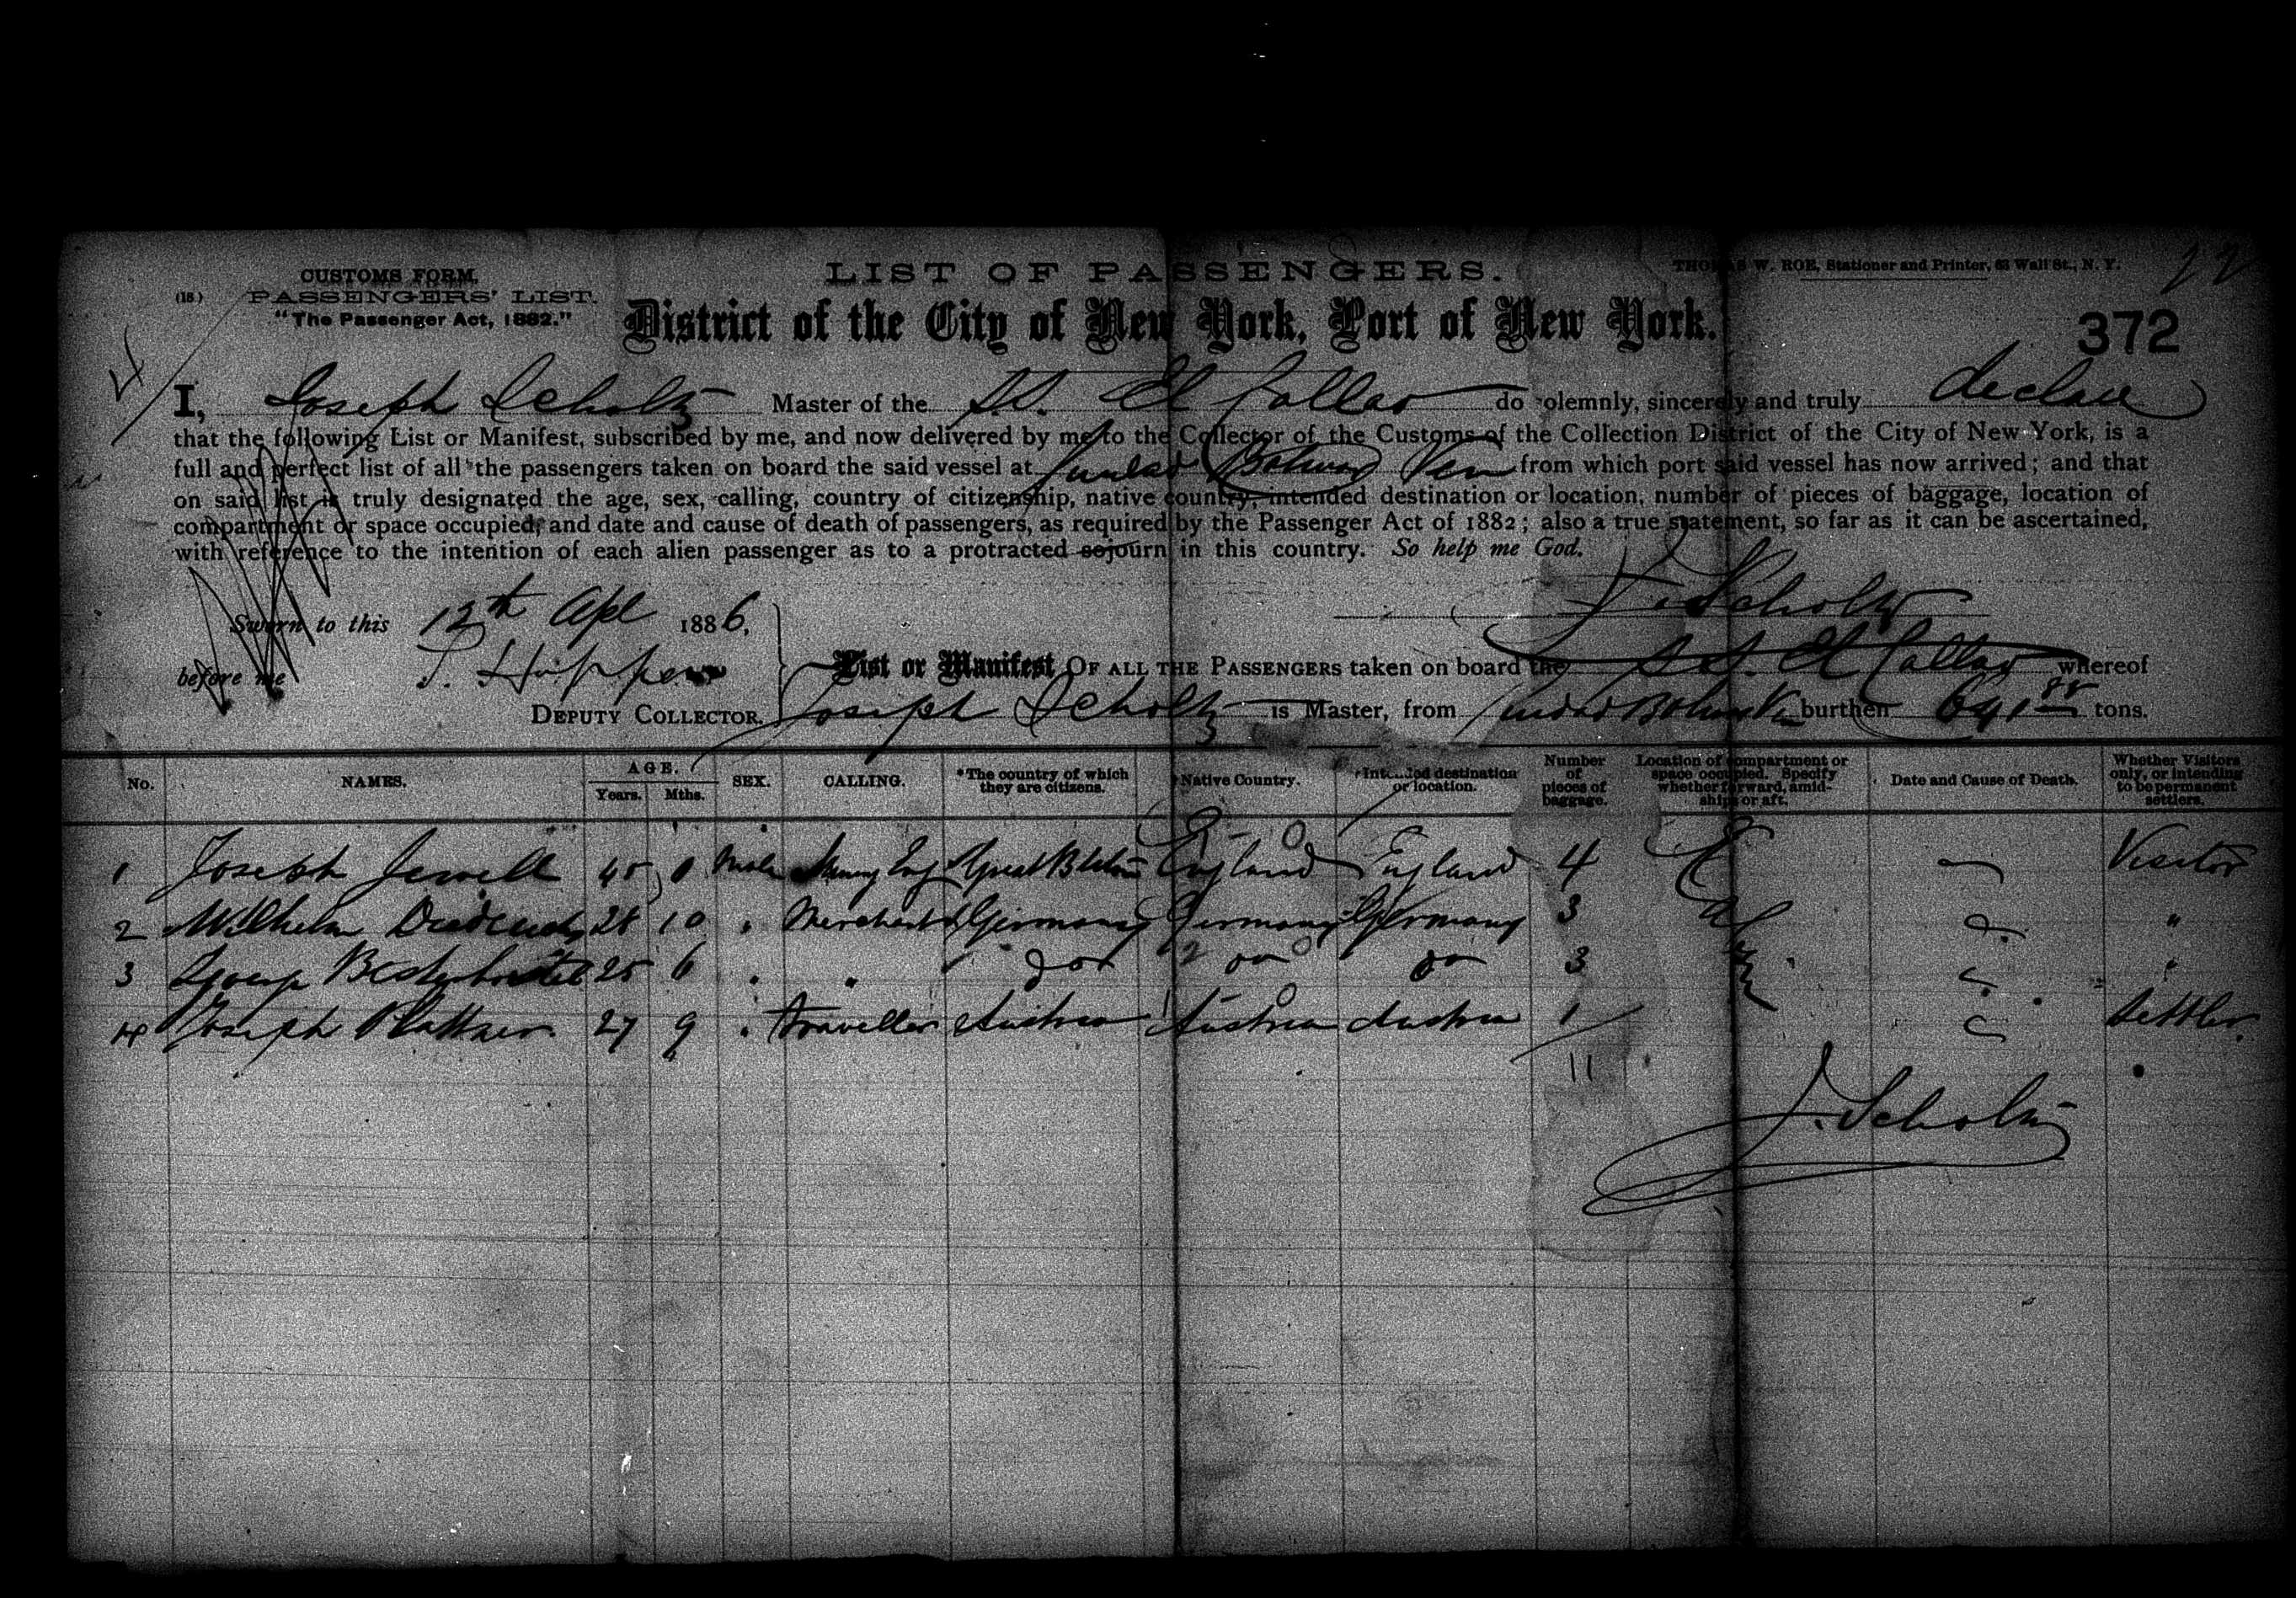 LIST OF PASSENGERS.
THOMAS W. ROE, Stationer and Printer, 63 Wall St., N. Y.
CUSTOMS FORM.
(18) PASSENGERS' LIST.
"The Passenger Act, 1882."
District of the City of New York, Port of New York.
372
I, Joseph Scholtz Master of the S.S. El Callao do solemnly, sincerely and truly declare
that the following List or Manifest, subscribed by me, and now delivered by me to the Collector of the Customs of the Collection District of the City of New York, is a
full and perfect list of all the passengers taken on board the said vessel at Ciudad Bolivar Ven from which port said vessel has now arrived; and that
on said list is truly designated the age, sex, calling, country of citizenship, native country, intended destination or location, number of pieces of baggage, location of
compartment or space occupied, and date and cause of death of passengers, as required by the Passenger Act of 1882; also a true statement, so far as it can be ascertained,
with reference to the intention of each alien passenger as to a protracted sojourn in this country. So help me God.
J. Scholtz
Sworn to this 12th Apl 1886,
before me
DEPUTY COLLECTOR.
List or Manifest OF ALL THE PASSENGERS taken on board the S.S. El Callao whereof
Joseph Scholtz is Master, from Ciudad Bolivar Ven burthen 641 tons.
No. NAMES. AGE. Years. Mths. SEX. CALLING. *The country of which they are citizens. Native Country. Intended destination or location. Number of pieces of baggage. Location of compartment or space occupied. Specify whether forward, amidships or aft. Date and Cause of Death. Whether Visitors only, or intending to be permanent settlers.
1 Joseph Jewell 45 Male Great Britain England England 4 Visitor
2 Wilhelm 28 10 " Merchant Germany Germany Germany 3 "
3 25 6 " " do do do 3 "
4 Joseph Plattner 27 9 " traveller Austria Austria Austria 1 Settler
11
J. Scholtz